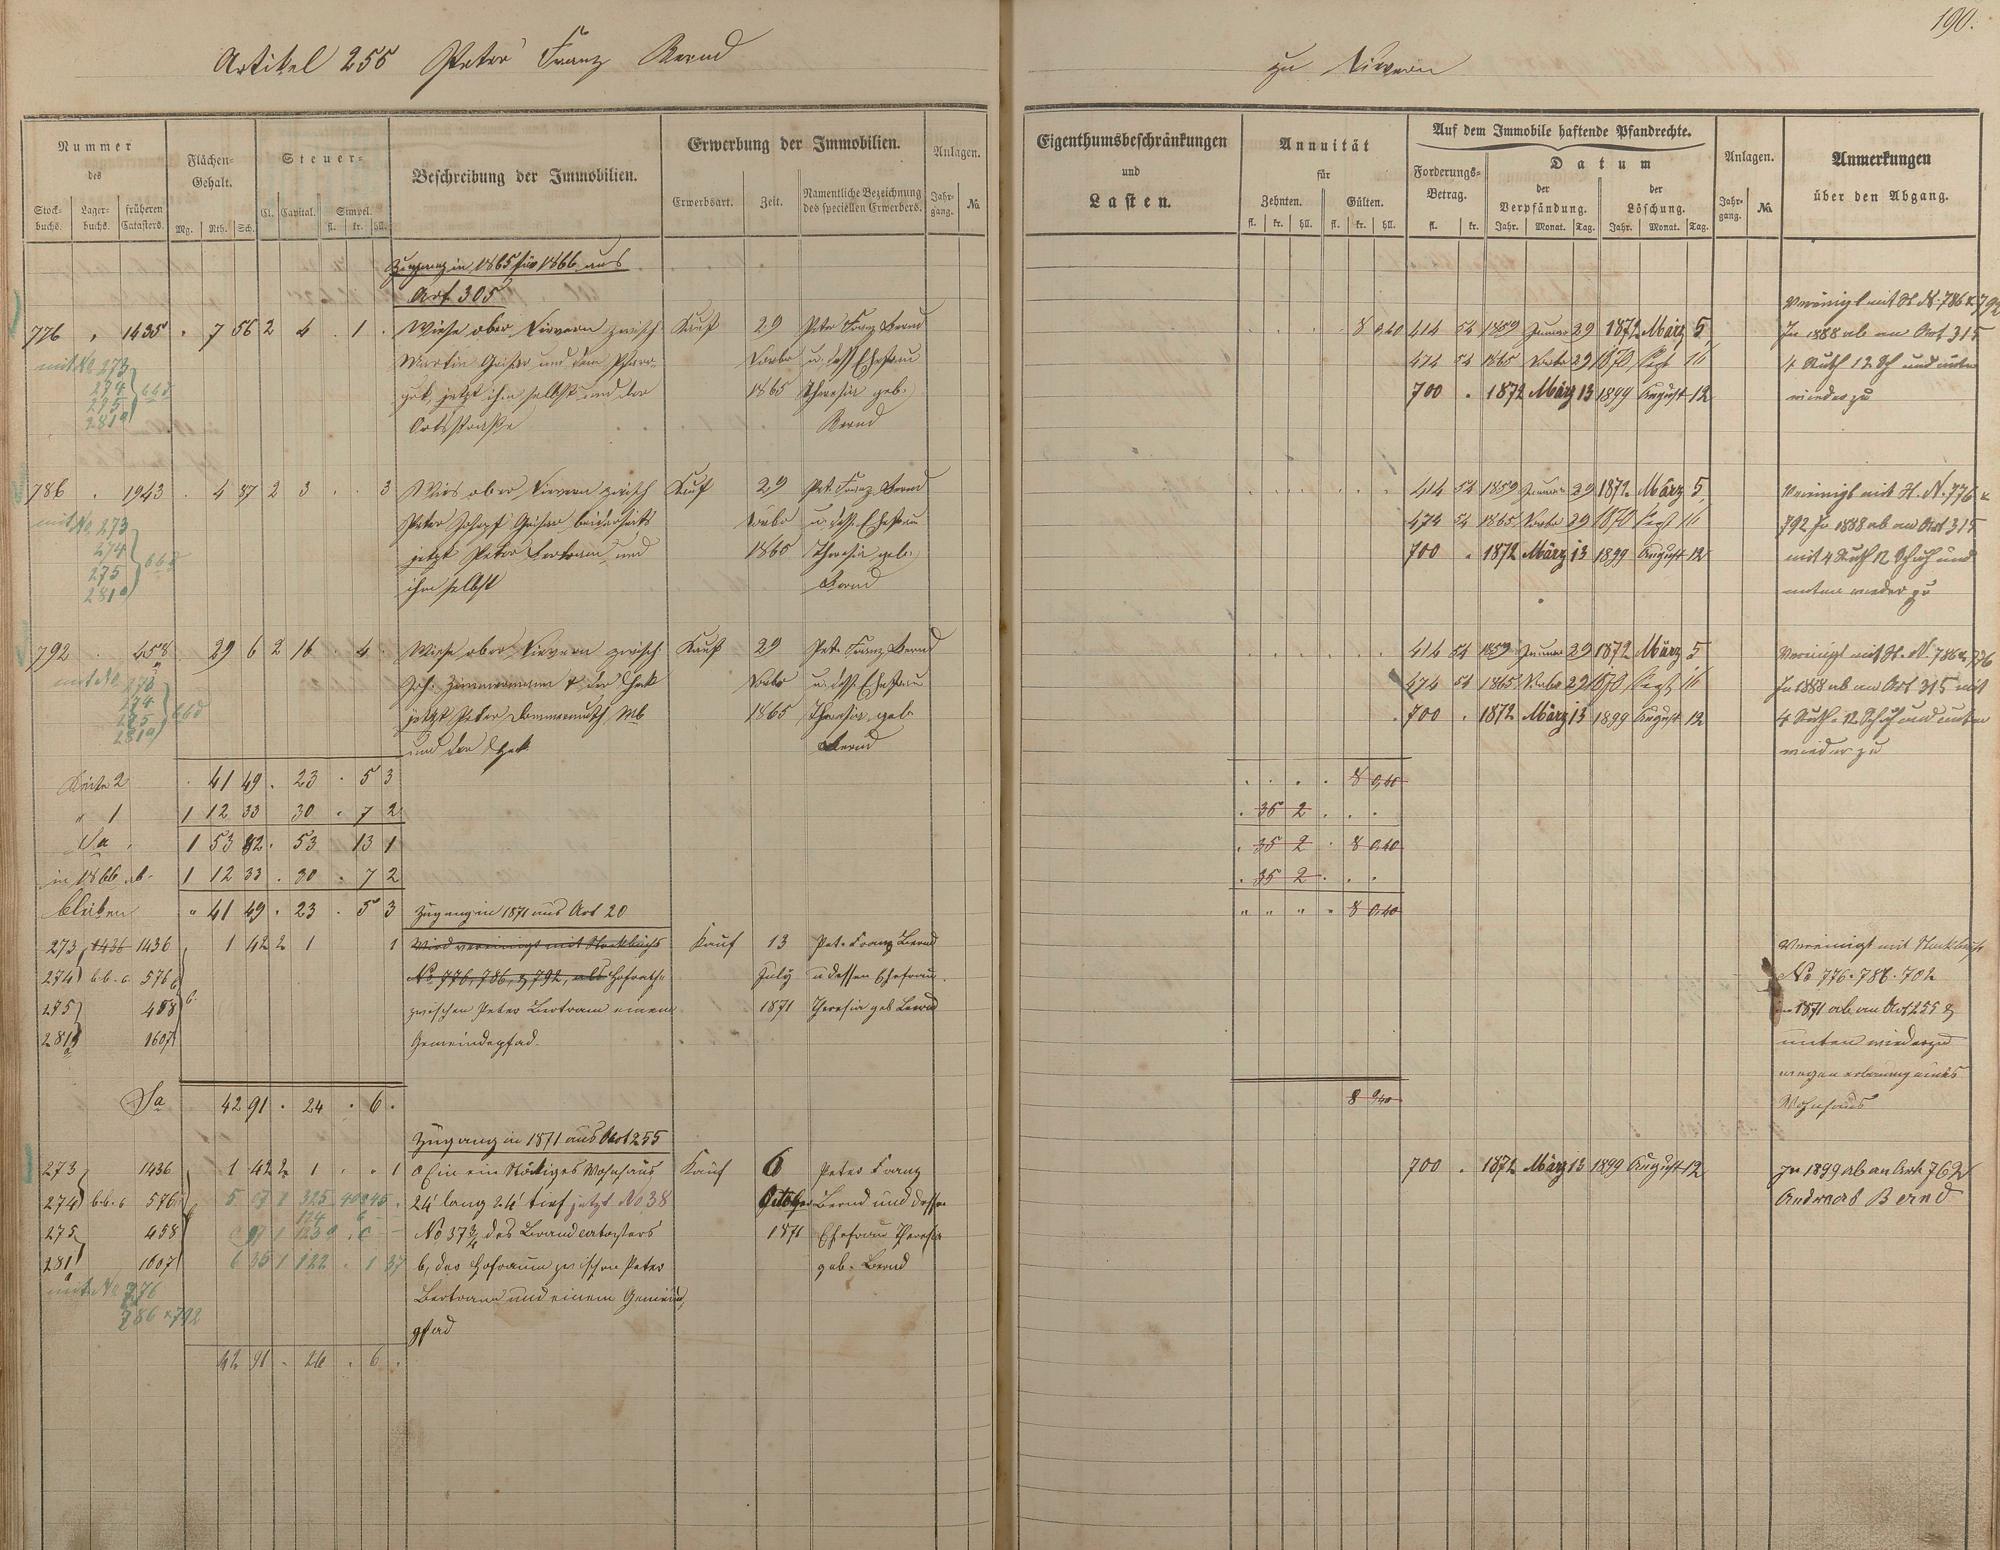 190.
Artikel 255 Peter Franz Bernd
zu Nievern
Nummer
des
Stockbuchs. Lagerbuchs. früheren Catasters.
Flächen-Gehalt.
Mg. Rth. Sch.
Steuer-
Cl. Capital. Simpel.
fl. kr. hll.
Beschreibung der Immobilien.
Erwerbung der Immobilien.
Erwerbsart. Zeit. Namentliche Bezeichnung des speciellen Erwerbers.
Anlagen.
Jahrgang. No.
Eigenthumsbeschränkungen
und
Lasten.
Annuität
für
Zehnten. Gülten.
fl. kr. hll. fl. kr. hll.
Auf dem Immobile haftende Pfandrechte.
Forderungs-Betrag.
fl. kr.
Datum
der Verpfändung. der Löschung.
Jahr. Monat. Tag. Jahr. Monat. Tag.
Anlagen.
Jahrgang. No.
Anmerkungen
über den Abgang.
Zugang in 1865 für 1866 aus
Art 305
776 1435 7 56 2 4 1 Wiese ober Nievern zwisch Kauf 29 Peter Franz Bernd
mit No 273 Martin Geisar und dem Pfarr- Novbr u. dess Ehefrau
274 66d gut, jetzt ihm selbst und der 1865 Theresia geb.
275 Ortsstraße Bernd
281a
8 0,40 414 54 1859 Januar 29 1872 März 5
474 54 1865 Novbr 29 1870 Sept 16
700 1872 März 13 1899 August 12
Vereinigt mit St. N. 786 & 792
In 1888 ab an Art 315
4 Ruth 12 Sch und unten
wieder zu
786 1943 4 87 2 3 3 Wies ober Nievern zwisch Kauf 29 Pet. Franz Bernd
mit No 273 Peter Josepf Geisar beiderseits Novbr u. dess. Ehefrau
274 66d jetzt Peter Bertram und 1865 Theresia geb.
275 ihm selbst Bernd
281a
414 54 1859 Januar 29 1872 März 5
474 54 1865 Novbr 29 1870 Sept 16
700 1872 März 13 1899 August 12
Vereinigt mit St. N. 776 &
792 In 1888 ab an Art 315
mit 4 Ruth 12 Schuh und
unten wieder zu
792 458 29 6 2 16 4 Wiese ober Nievern zwisch Kauf 29 Pet. Franz Bernd
mit No 273 Joh. Zimmermann & der Novbr u. dess Ehefrau
274 66d jetzt Peter Dommermuth 1865 Theresia geb.
275 und der Bernd
281a
414 54 1859 Januar 29 1872 März 5
474 54 1865 Novbr 29 1870 Sept 16
700 1872 März 13 1899 August 12
Vereinigt mit St. N. 786 & 776
In 1888 ab an Art 315 mit
4 Ruth 12 Schuh und unten
wieder zu
Seite 2 41 49 23 5 3 8 0,40
" 1 1 12 33 30 7 2 35 2
Sa 1 53 82 53 13 1 35 2 8 0,40
in 1866 ab 1 12 33 30 7 2 35 2
bleiben " 41 49 23 5 3 Zugang in 1871 aus Art 20 8 0,40
273 1436 1436 1 42 2 1 1 Wird vereinigt mit Stockbuchs Kauf 13 Pet. Franz Bernd
274 b.b. c 576 No 776, 786, & 792, als Hofraith July u dessen Ehefrau
275 458 zwischen Peter Bertram einem 1871 Theresia geb Bernd
281a 1607 Gemeindepfad.
Vereinigt mit Stockbuchs
No 776. 786. 702
in 1871 ab an Art 255 &
unten wiederzu
wegen erbauung eines
Wohnhaus
Sa 42 91 24 6 8 0,40
Zugang in 1871 aus Art 255
273 1436 1 42 2 1 1 a Ein ein Stökiges Wohnhaus Kauf 6 Peter Franz
274 b.b. c 576 24' lang 24' tief jetzt No. 38 October Bernd und dessen
275 458 No 37 3/4 des Brandcatasters 1871 Ehefrau Theresia
281a 1607 6 35 1 122 1 37 b, der Hofraum zwischen Peter geb. Bernd
mit No 776 Bertram und einem Gemeinde
786 & 792 pfad
700 1872 März 13 1899 August 12
In 1899 ab an Art 762
Andreas Bernd
42 91 24 6